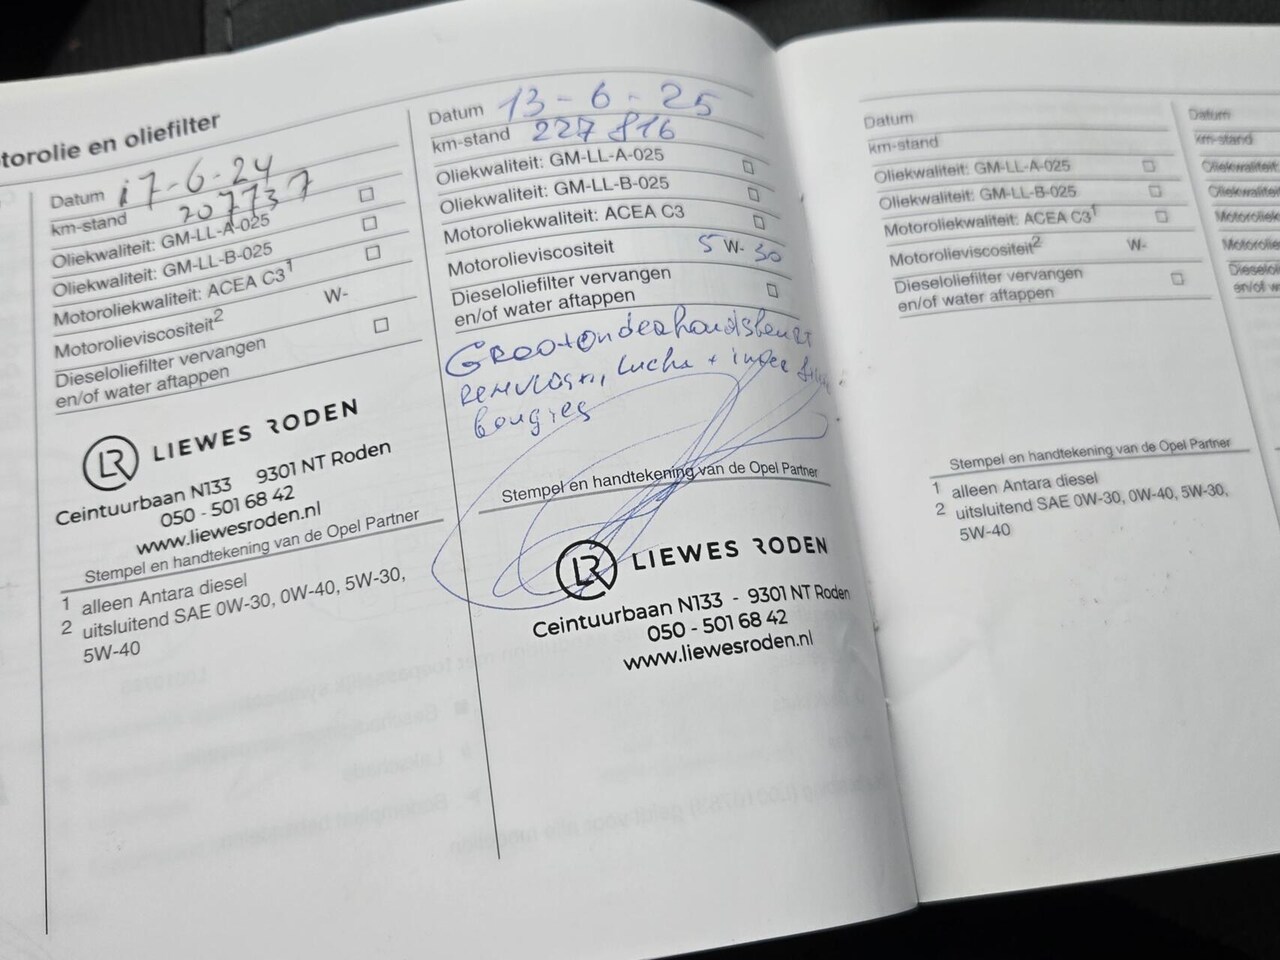 torolie en oliefilter
Datum 17-6-24
km-stand 207737
Oliekwaliteit: GM-LL-A-025
Oliekwaliteit: GM-LL-B-025
Motoroliekwaliteit: ACEA C3¹
Motorolieviscositeit² W-
Dieseloliefilter vervangen
en/of water aftappen
LR LIEWES RODEN
Ceintuurbaan N133 9301 NT Roden
050 - 501 68 42
www.liewesroden.nl
Stempel en handtekening van de Opel Partner
1 alleen Antara diesel
2 uitsluitend SAE 0W-30, 0W-40, 5W-30,
5W-40
Datum 13-6-25
km-stand 227 816
Oliekwaliteit: GM-LL-A-025
Oliekwaliteit: GM-LL-B-025
Motoroliekwaliteit: ACEA C3
Motorolieviscositeit 5 W- 30
Dieseloliefilter vervangen
en/of water aftappen
Grootonderhoudsbeurt
Remvlost, lucht +
bougies
Stempel en handtekening van de Opel Partner
LR LIEWES RODEN
Ceintuurbaan N133 - 9301 NT Roden
050 - 501 68 42
www.liewesroden.nl
Datum
km-stand
Oliekwaliteit: GM-LL-A-025
Oliekwaliteit: GM-LL-B-025
Motoroliekwaliteit: ACEA C3¹
Motorolieviscositeit² W-
Dieseloliefilter vervangen
en/of water aftappen
Stempel en handtekening van de Opel Partner
1 alleen Antara diesel
2 uitsluitend SAE 0W-30, 0W-40, 5W-30,
5W-40
Datum
km-stand
Oliekwaliteit:
Oliekwaliteit: